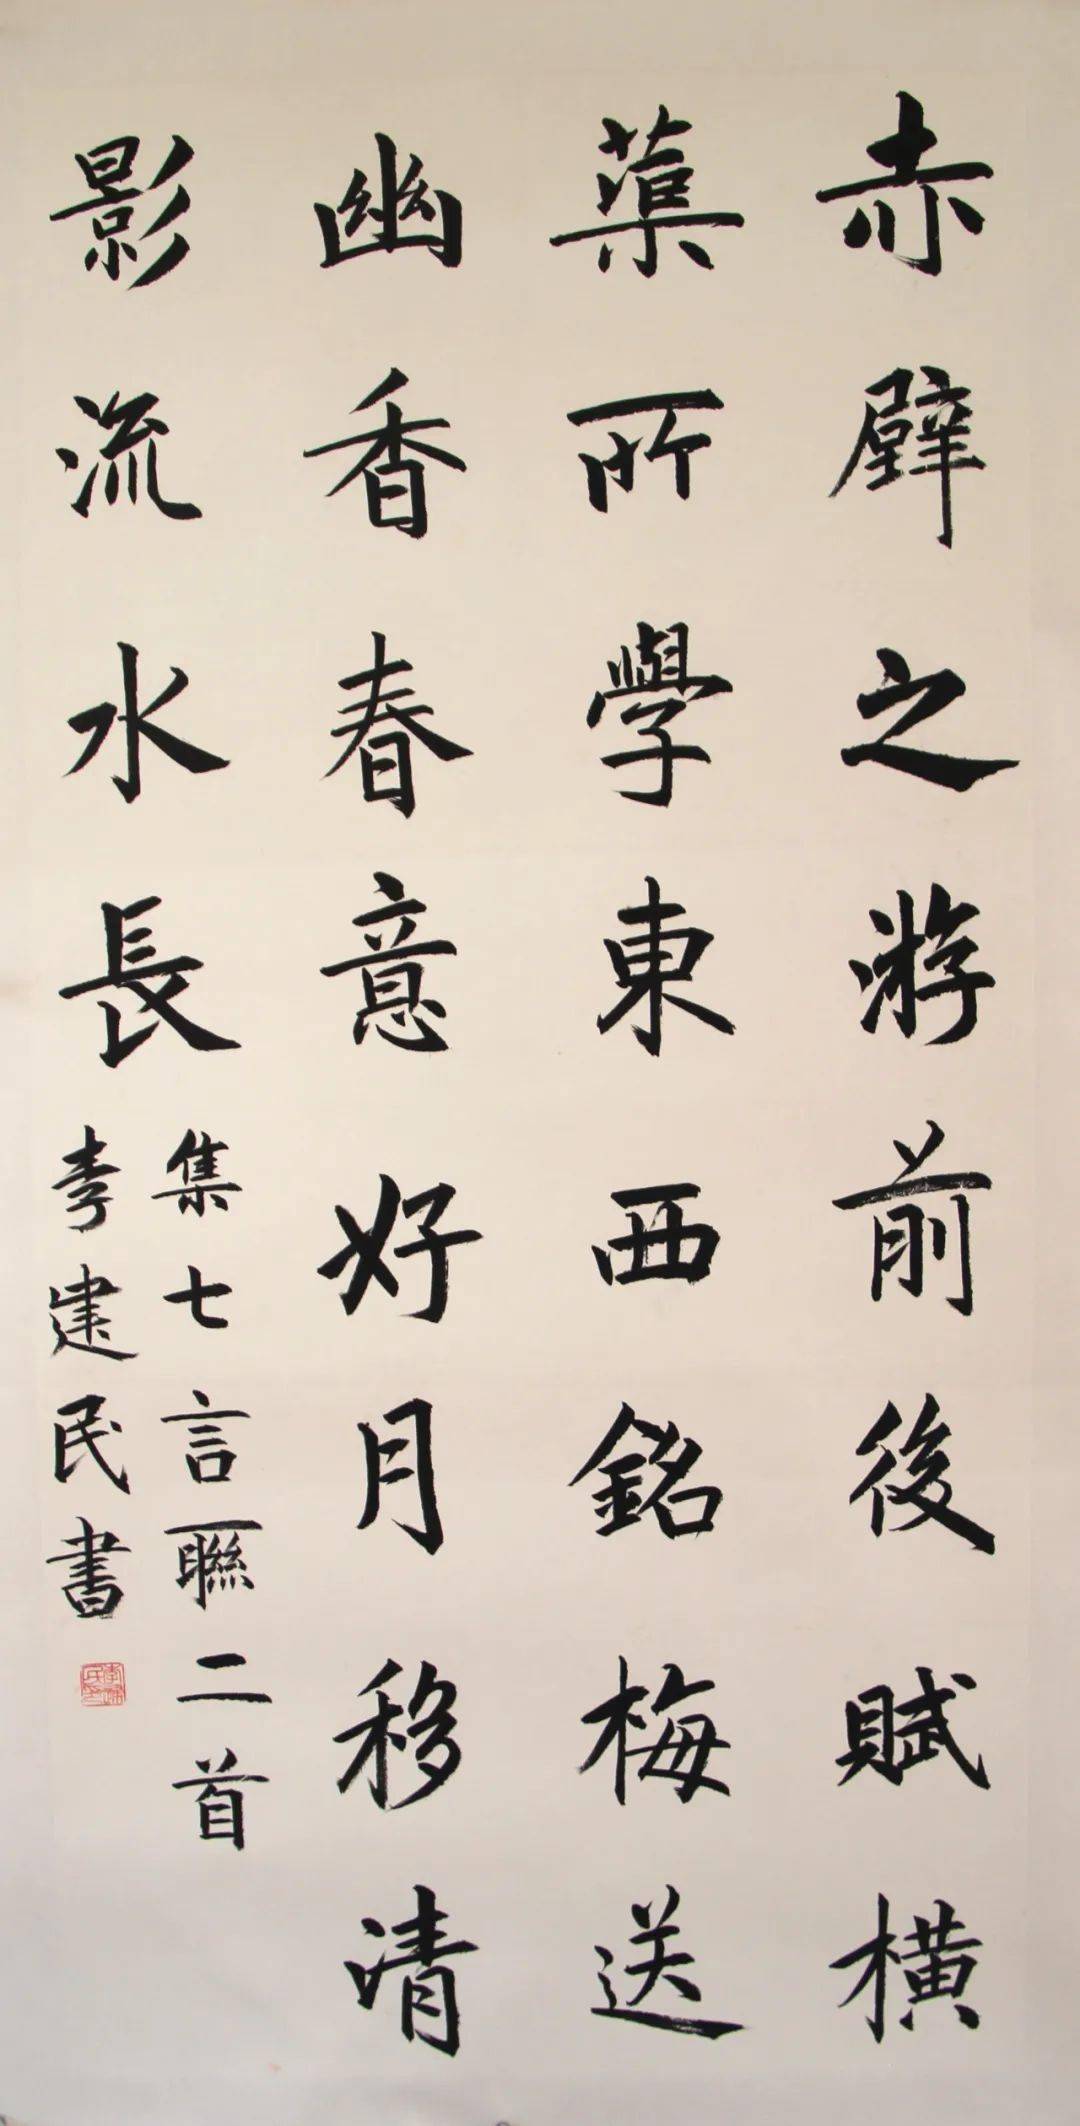 赤壁之游前後賦橫
蕖所學東西銘梅送
幽香春意好月移清
影流水長
集七言聯二首
李建民書